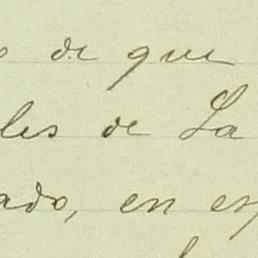 o de que
les de La
ado, en es